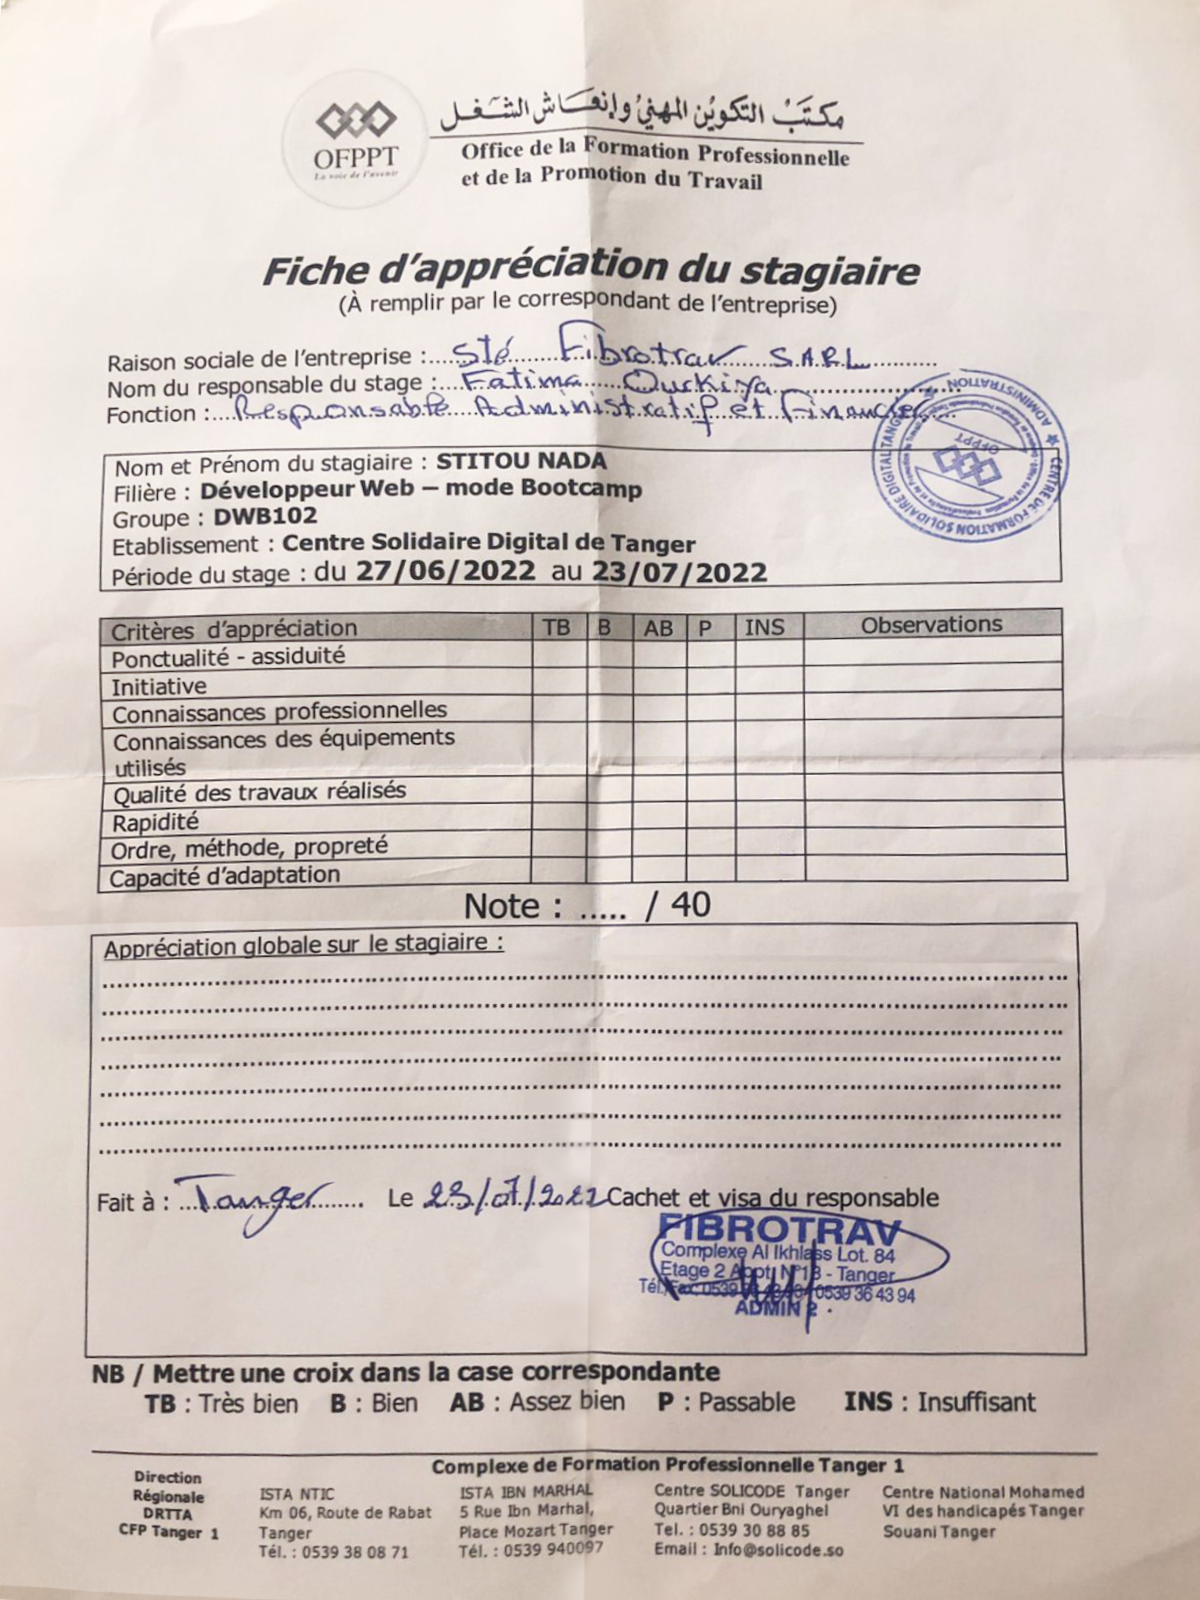 OFPPT
La voie de l'avenir
مكتب التكوين المهني وإنعاش الشغل
Office de la Formation Professionnelle
et de la Promotion du Travail
Fiche d'appréciation du stagiaire
(À remplir par le correspondant de l'entreprise)
Raison sociale de l'entreprise : Sté Fibrotrav S.A.R.L
Nom du responsable du stage : Fatima Ourkiya
Fonction : Responsable Administratif et Financier
Nom et Prénom du stagiaire : STITOU NADA
Filière : Développeur Web – mode Bootcamp
Groupe : DWB102
Etablissement : Centre Solidaire Digital de Tanger
Période du stage : du 27/06/2022 au 23/07/2022
CENTRE DE FORMATION SOLIDAIRE DIGITAL TANGER ★ ADMINISTRATION ★
OFPPT
Critères d'appréciation TB B AB P INS Observations
Ponctualité - assiduité
Initiative
Connaissances professionnelles
Connaissances des équipements
utilisés
Qualité des travaux réalisés
Rapidité
Ordre, méthode, propreté
Capacité d'adaptation
Note : ..... / 40
Appréciation globale sur le stagiaire :
Fait à : Tanger Le 23/07/2022 Cachet et visa du responsable
FIBROTRAV
Complexe Al Ikhlass Lot. 84
Etage 2 Appt N°18 - Tanger
Tél./Fax: 0539 36 43 94
ADMIN 2
NB / Mettre une croix dans la case correspondante
TB : Très bien B : Bien AB : Assez bien P : Passable INS : Insuffisant
Complexe de Formation Professionnelle Tanger 1
Direction
Régionale
DRTTA
CFP Tanger 1
ISTA NTIC
Km 06, Route de Rabat
Tanger
Tél. : 0539 38 08 71
ISTA IBN MARHAL
5 Rue Ibn Marhal,
Place Mozart Tanger
Tél. : 0539 940097
Centre SOLICODE Tanger
Quartier Bni Ouryaghel
Tel. : 0539 30 88 85
Email : Info@solicode.so
Centre National Mohamed
VI des handicapés Tanger
Souani Tanger